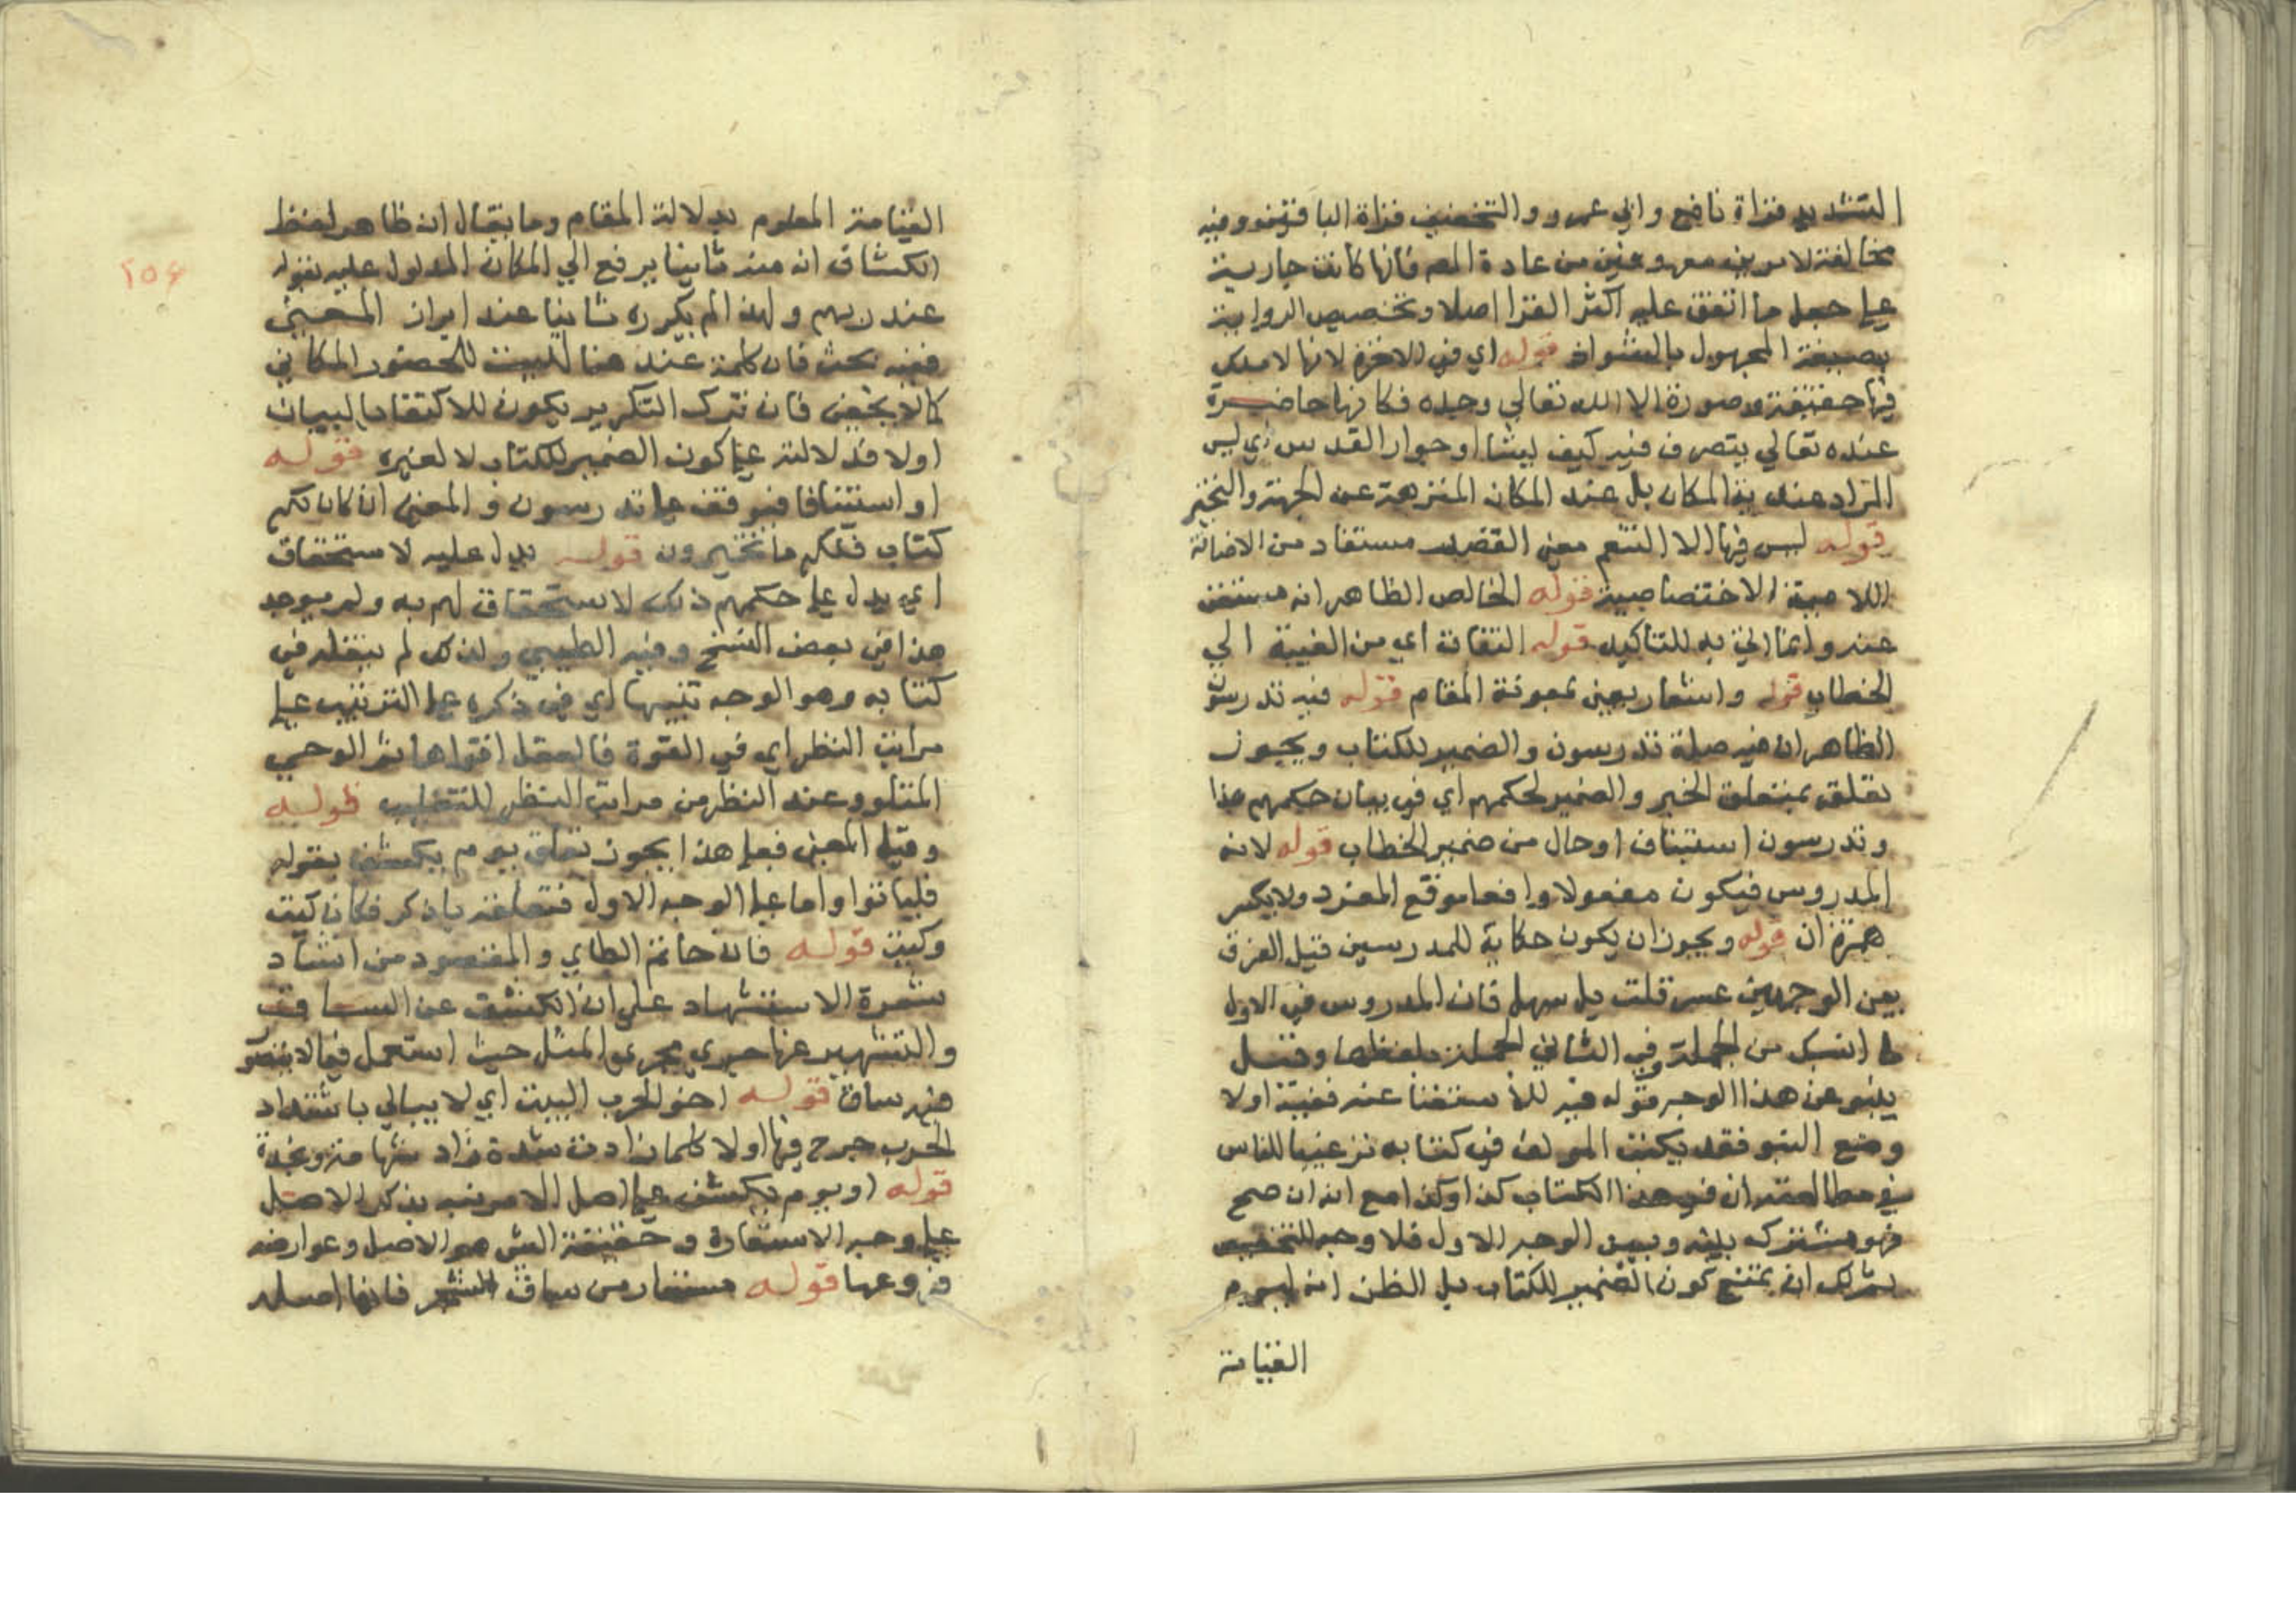 التشديد قراة نافع وابي عمرو والتخفيف قراة الباقين وفيه
مخالفة لامرين معهودين من عادة المص فانها كانت جارية
علي جعل ما اتفق عليه اكثر القرا اصلا وتخصيص الرواية
بصيغة المجهول بالشواذ قوله اي في الاخرة لانها لا يملك
فيها حقيقة وصورة الا الله تعالي وحده فكانها حاضرة
عنده تعالي يتصرف فيه كيف يشا او جوار القدس اي ليس
المراد عندية المكان بل عند المكان المنزهة عن الجهة والتحيز
قوله ليس فيها الا التنعم معني القصر مستفاد من الاضافة
اللامية الاختصاصية قوله الخالص الظاهر انه مستغن
عنه وانما اتي به للتاكيد قوله التفات اي من الغيبة الي
الخطاب قوله واشعار يعني بمعونة المقام قوله فيه تدرسون
الظاهر ان فيه صلة تدرسون والضمير للكتاب ويجوز
تعلقه بمتعلق الخبر والضمير لحكمهم اي في بيان حكمهم هذا
وتدرسون استيناف او حال من ضمير الخطاب قوله لانه
المدروس فيكون مفعولا واقعا موقع المفرد ولا يكسر
همزة ان قوله ويجوز ان يكون حكاية للمدروس قيل الفرق
بين الوجهين عسر قلت بل سهل فان المدروس في الاول
ما انسبك من الجملة وفي الثاني الجملة بلفظها وقيل
ينبو عن هذا الوجه قوله فيه للاستغنا عنه ففيه اولا
ومنع النبو فقد يكتب المولف في كتابه ترغيبا للناس
في مطالعته ان في هذا الكتاب كذا وكذا مع انه ان صح
فهو مشترك بينه وبين الوجه الاول فلا وجه للتخصيص
ان يمتنع كون الضمير للكتاب بل الظن انه ليوم
القيامة
القيامة المعلوم بدلالة المقام وما يقال ان ظاهر لفظ
الكشاف ان فيه ثانيا يرفع الي المكان المدلول عليه بقوله
عند ربهم ولهذا لم يكرره ثانيا عند ابراز المعني
ففيه بحث فان كلمة عند هنا ليست للحضور المكاني
كما لا يخفي فان ترك التكرير يكون للاكتفا بالبيان
اولا فلا دلالة علي كون الضمير للكتاب لا لغيره قوله
او استئنافا فيوقف علي تدرسون والمعني ان كان لكم
كتاب فلكم ما تخيرون قوله يدل عليه لاستحقاق
اي يدل علي حكمهم ذلك لاستحقاق لهم به ولم يوجد
هذا في بعض النسخ وفيه الطيبي ولذلك لم ينقله في
كتابه وهو الوجه تنبيها اي في ذكره علي الترتيب علي
مراتب النظر اي في القوة فالعقل اقواها ثم الوحي
المتلو وعند النظر من مراتب النظر للتغليب قوله
وقيل المعني فعلي هذا يجوز تعلق يوم يكشف بقوله
فلياتوا واما علي الوجه الاول فتعلقه باذكر فكان كيت
وكيت قوله قال حاتم الطاي والمقصود من انشاد
شعره الاستشهاد علي ان الكشف عن الساق
والتشهير عنها جري مجري المثل حيث استعمل فيما لا يتصور
فيه ساق قوله اخو الحرب البيت اي لا يبالي باشتداد
الحرب جرح فيها او لا كلما زادت شدة زاد شهامة ونجدة
قوله او يوم يكشف علي اصل الامر فيه بذكر الاصل
علي وجه الاستعارة وحقيقة الشي هو الاصل وعوارضه
فروعها قوله مستعار من ساق الشجر فانها اصله
٢٥٤